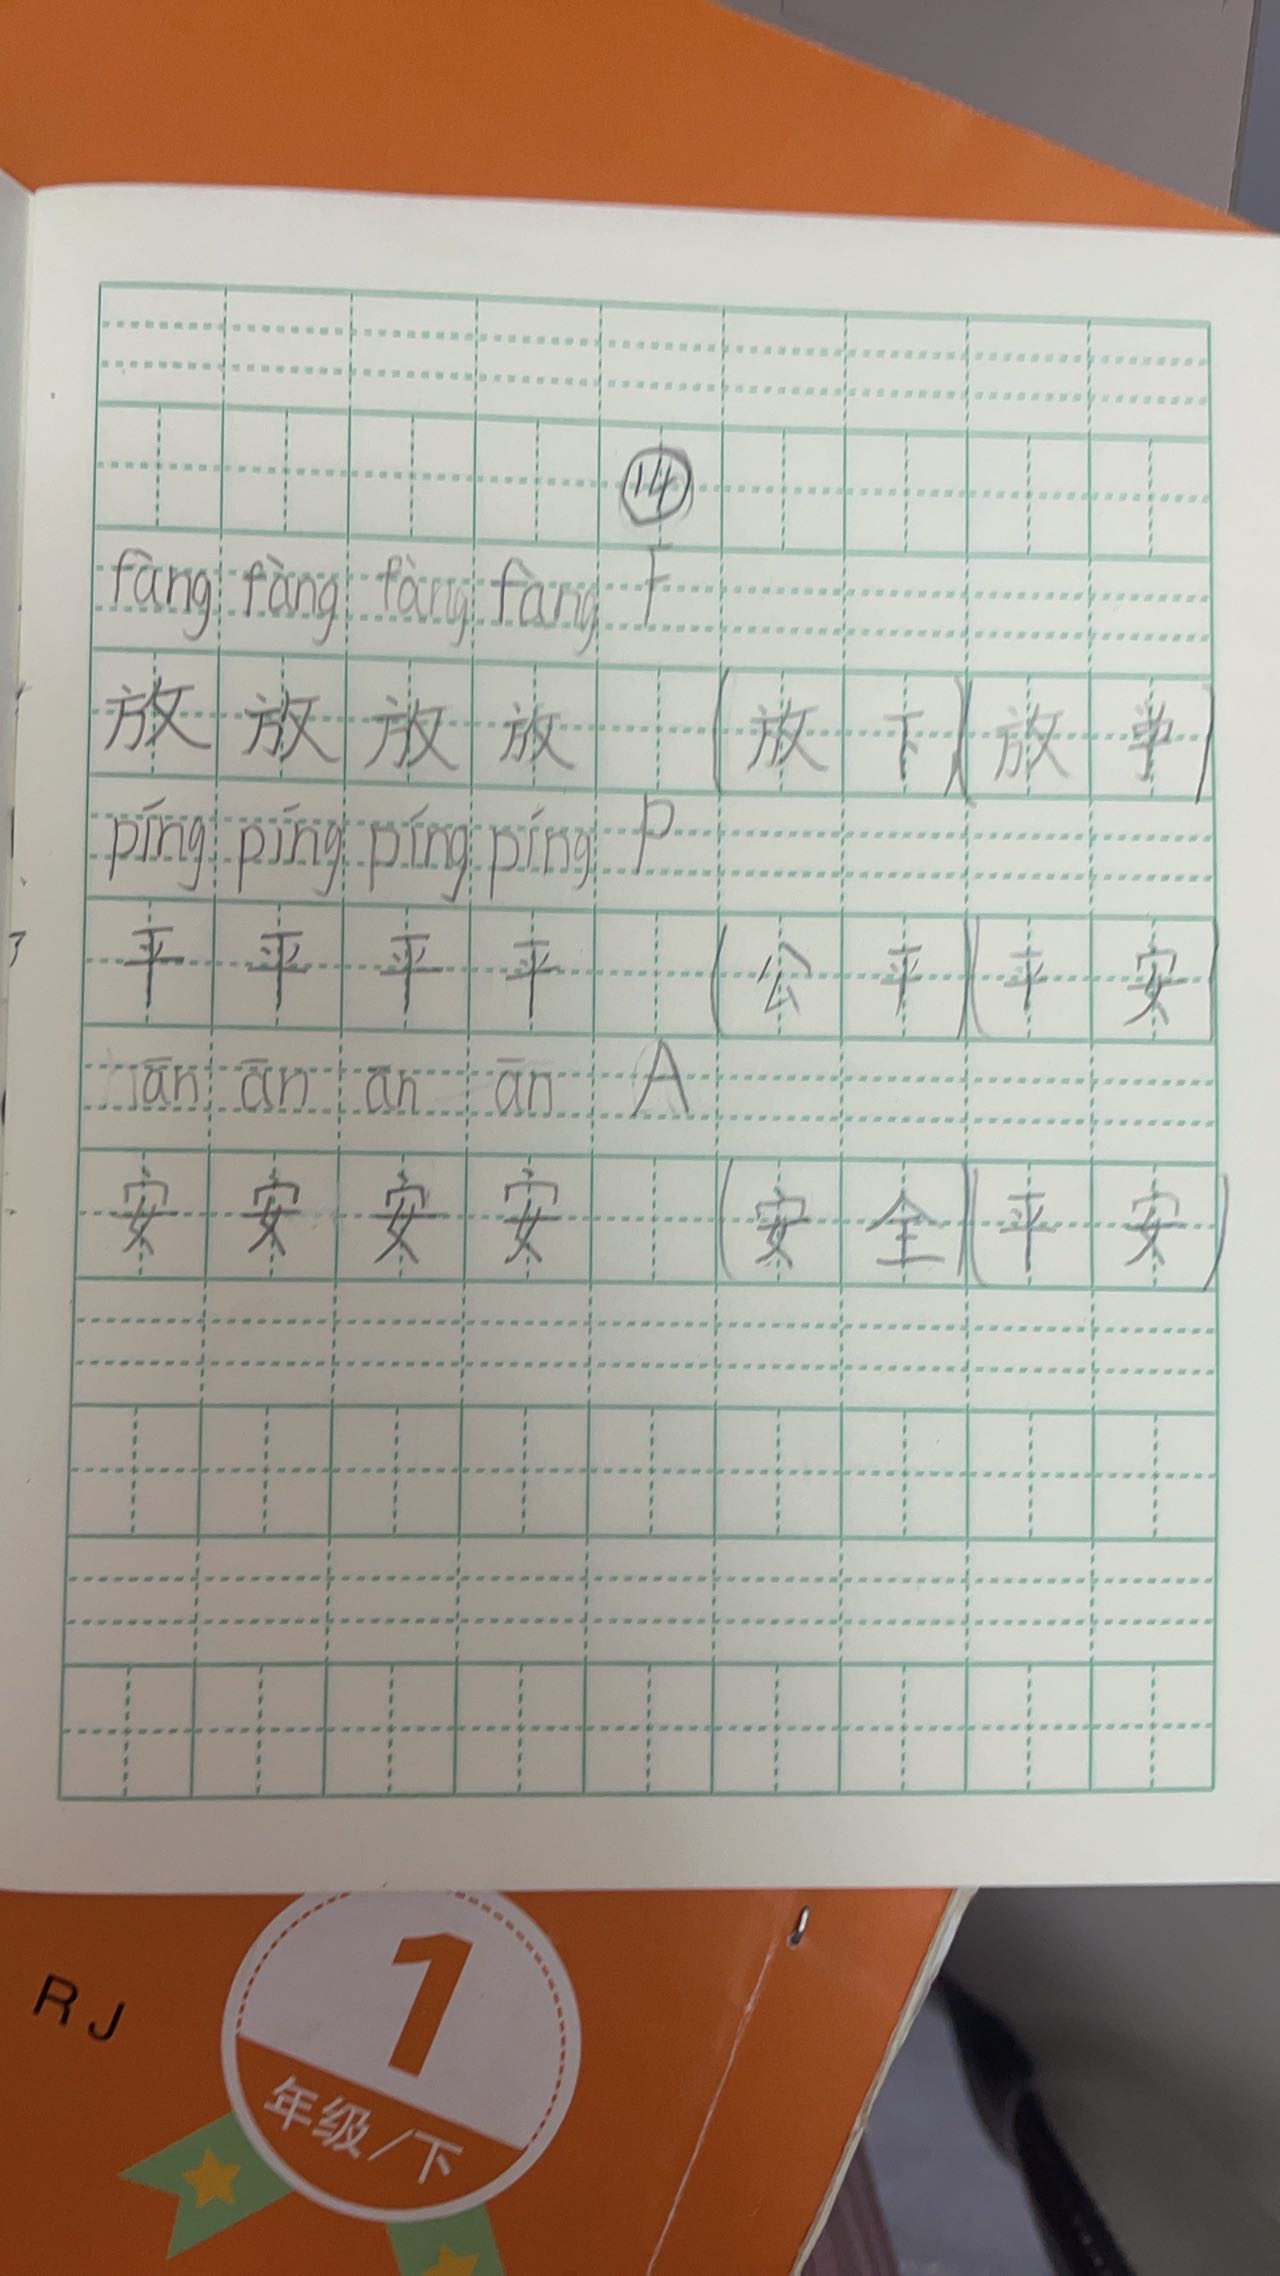 ⑭
fàng fàng fàng fàng F
放 放 放 放 (放 下)(放 学)
píng píng píng píng P
平 平 平 平 (公 平)(平 安)
ān ān ān ān A
安 安 安 安 (安 全)(平 安)
RJ
1
年级/下